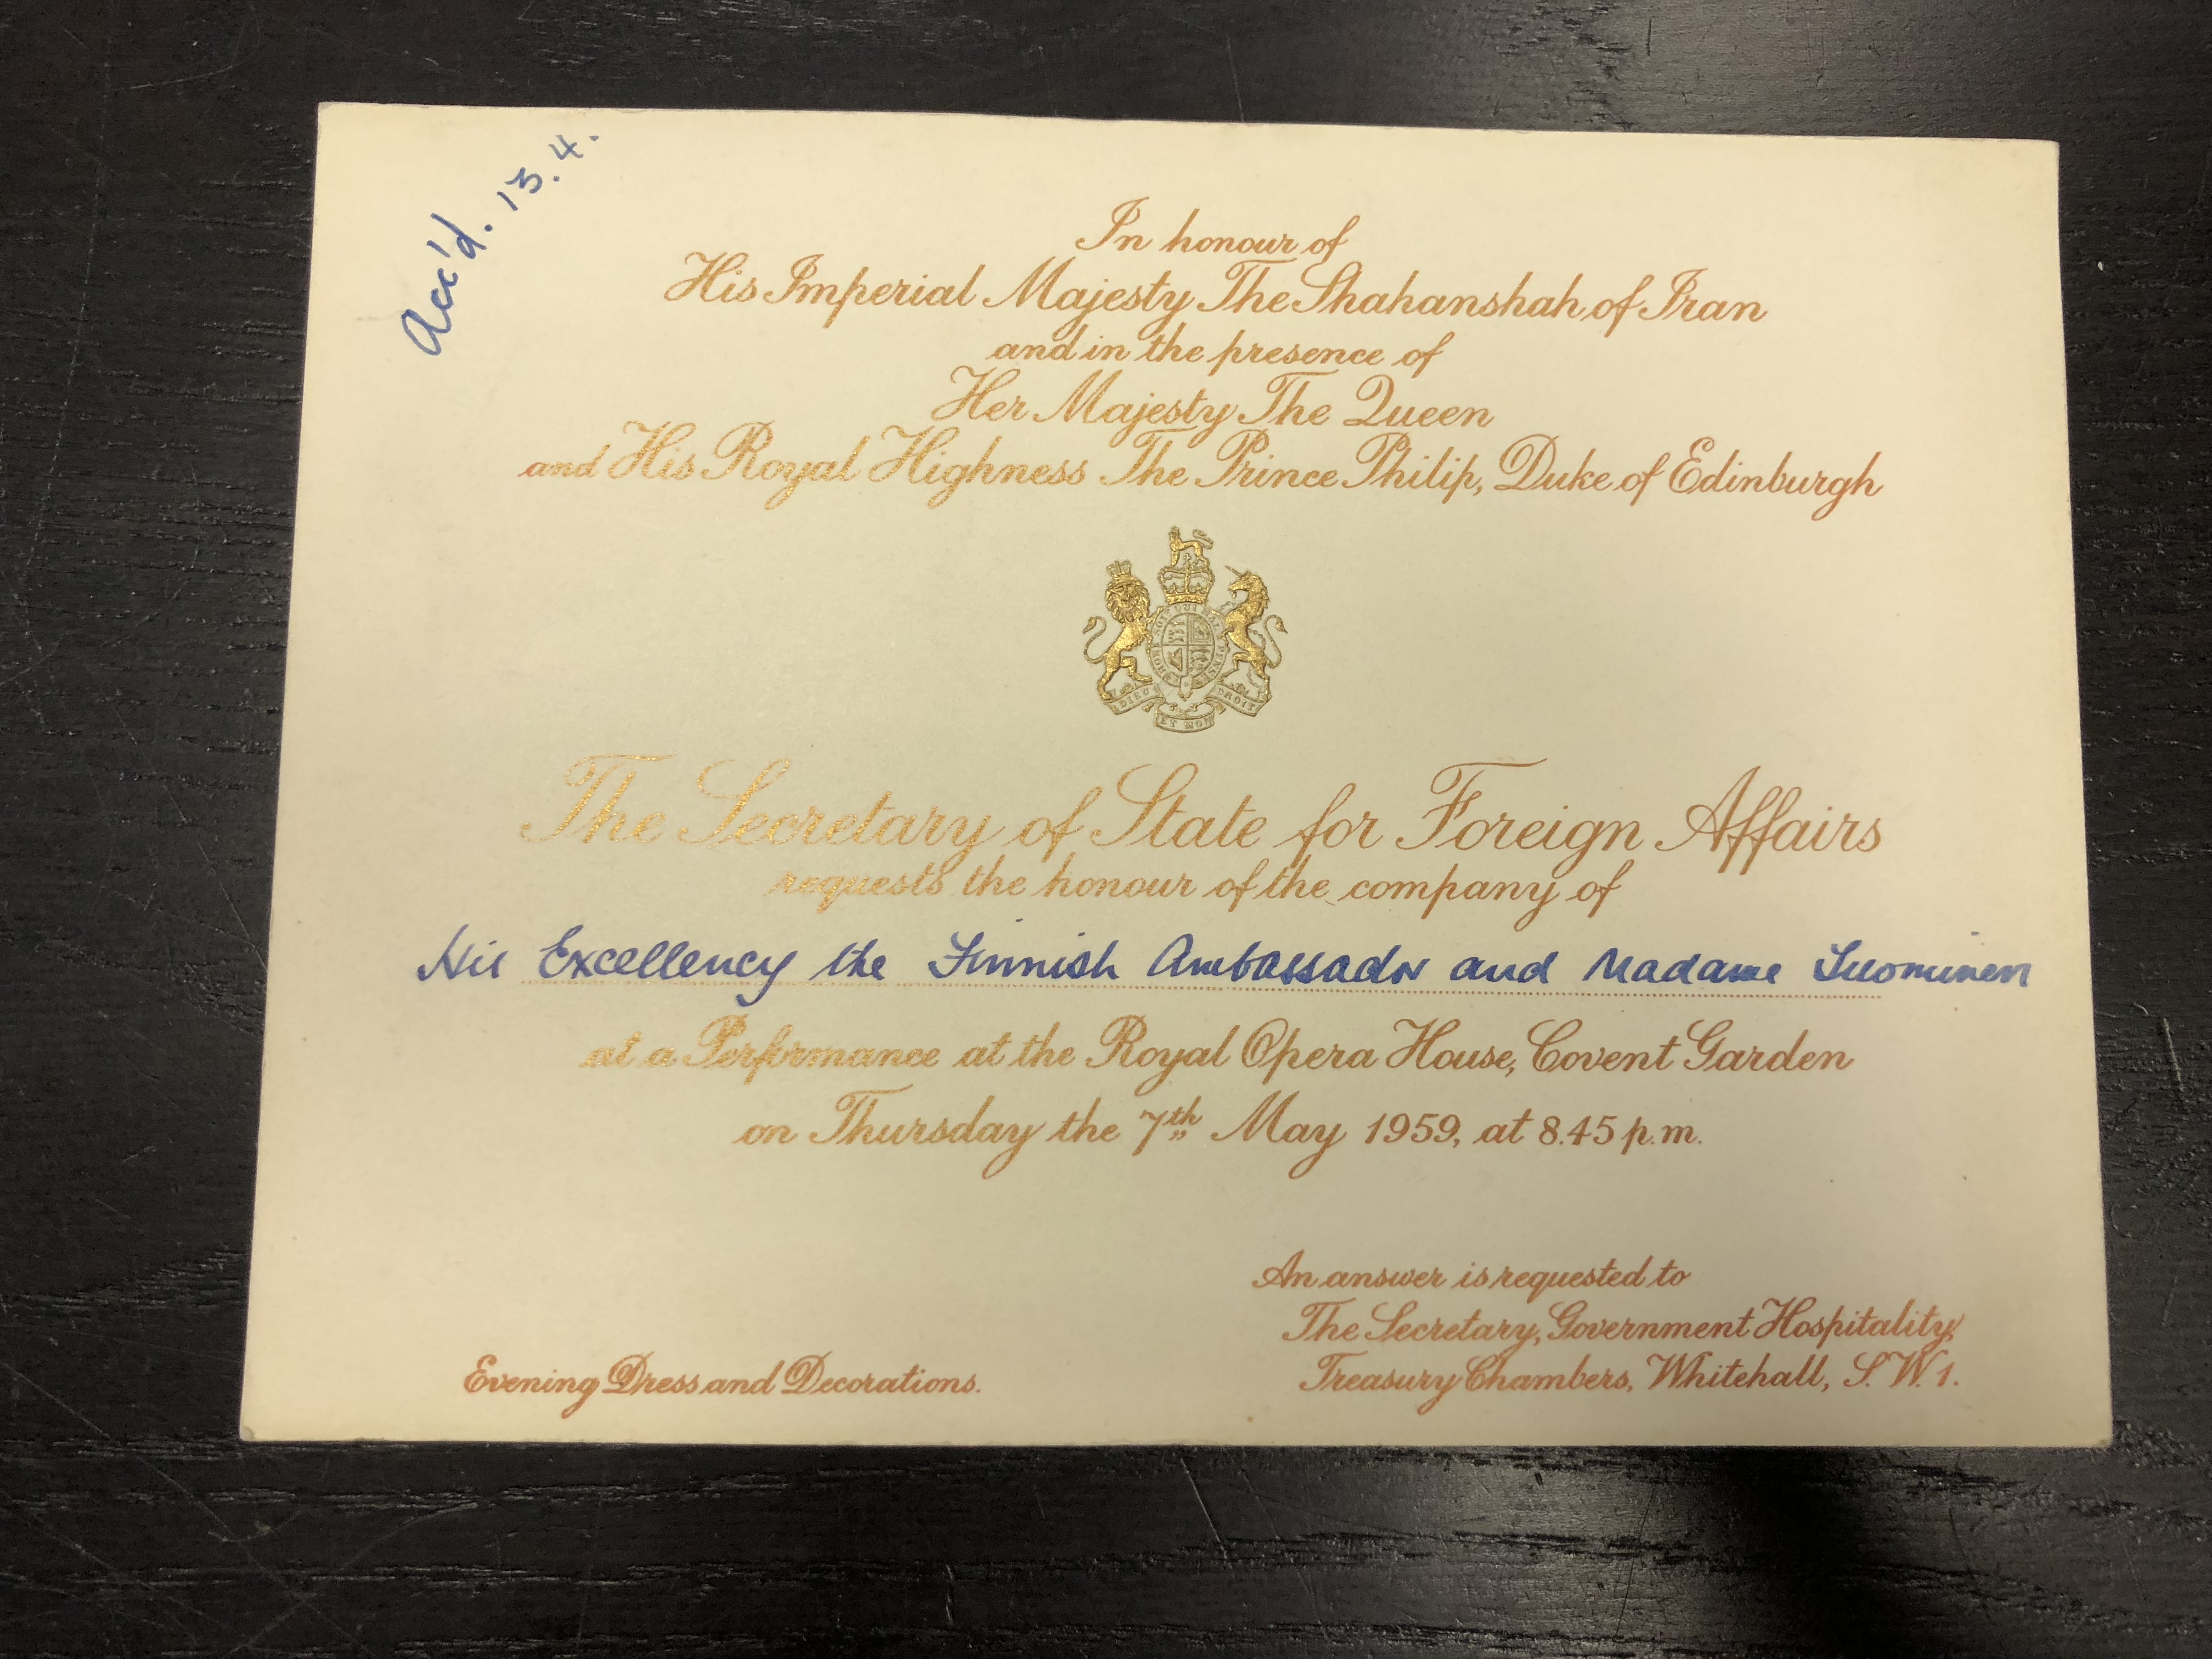 Acc'd. 13.4.
In honour of
His Imperial Majesty The Shahanshah of Iran
and in the presence of
Her Majesty The Queen
and His Royal Highness The Prince Philip, Duke of Edinburgh
HONI SOIT QUI MAL Y PENSE
DIEU ET MON DROIT
The Secretary of State for Foreign Affairs
requests the honour of the company of
His Excellency the Finnish Ambassador and Madame Suominen
at a Performance at the Royal Opera House, Covent Garden
on Thursday the 7th May 1959, at 8.45 p.m.
An answer is requested to
The Secretary, Government Hospitality,
Treasury Chambers, Whitehall, S.W.1.
Evening Dress and Decorations.